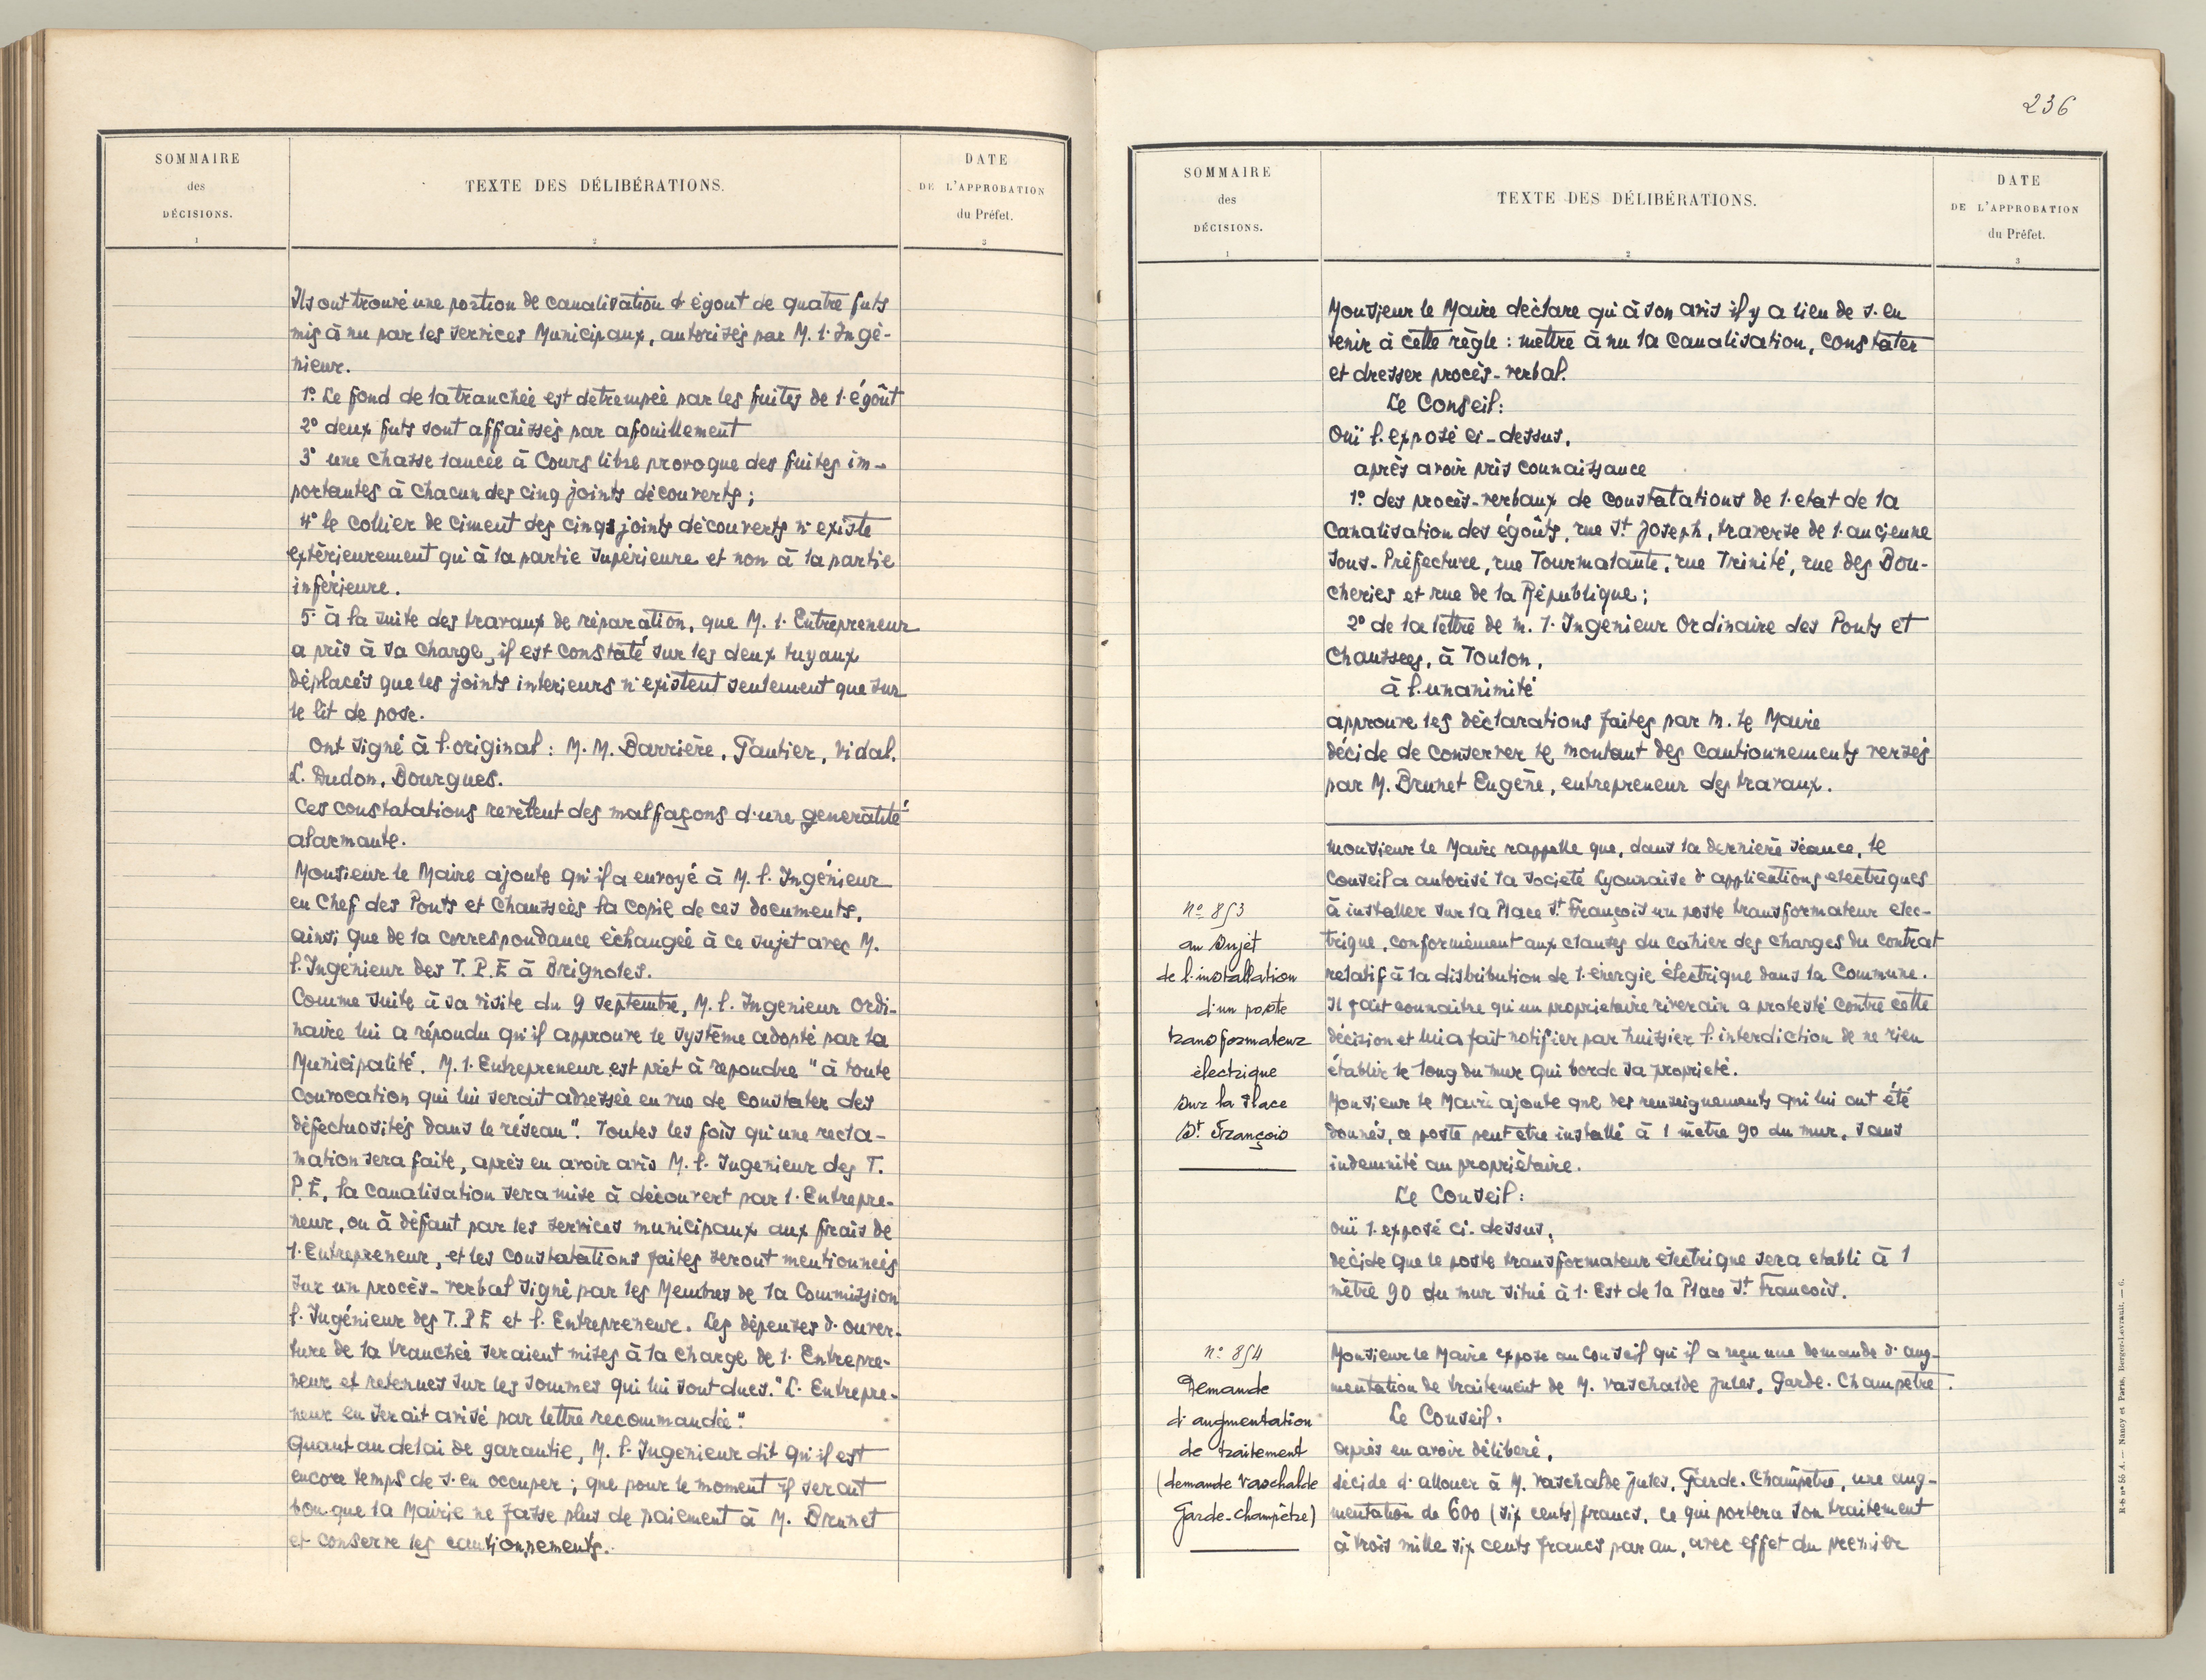 SOMMAIRE
des
DÉCISIONS.
1
TEXTE DES DÉLIBÉRATIONS.
2
DATE
DE L'APPROBATION
du Préfet.
3
Ils ont trouvé une portion de canalisation d'égout de quatre futs
mis à nu par les services Municipaux, autorisés par M. l'Ingé-
nieur.
1º Le fond de la tranchée est détrempée par les fuites de l'égoût
2º deux futs sont affaissés par afouillement
3º une chasse lancée à Cours libre provoque des fuites im-
portantes à chacun des cinq joints découverts ;
4º le collier de ciment des cinqs joints découverts n'existe
extérieurement qu'à la partie supérieure et non à la partie
inférieure.
5º à la suite des travaux de réparation, que M. l'Entrepreneur
a pris à sa charge, il est constaté sur les deux tuyaux
déplacés que les joints interieurs n'existent seulement que sur
le lit de pose.
Ont signé à l'original : M. M. Barrière, Gautier, Vidal.
L. Dudon, Bourgues.
Ces constatations revèlent des malfaçons d'une generalité
alarmante.
Monsieur le Maire ajoute qu'il a envoyé à M. l'Ingénieur
en Chef des Ponts et Chaussées la copie de ces documents,
ainsi que de la correspondance échangée à ce sujet avec M.
l'Ingénieur des T.P.E à Brignoles.
Comme suite à sa visite du 9 septembre, M. l'Ingenieur Ordi-
naire lui a répondu qu'il approuve le système adopté par la
Municipalité. M. l'Entrepreneur est prêt à repondre " à toute
convocation qui lui serait adressée en vue de constater des
défectuosités dans le réseau". Toutes les fois qu'une recla-
mation sera faite, après en avoir avis M. l'Ingenieur des T.
P.E, la canalisation sera mise à découvert par l'Entrepre-
neur, ou à défaut par les services municipaux aux frais de
l'Entrepreneur, et les constatations faites seront mentionnées
sur un procès-verbal signé par les Membres de la Commission
l'Ingénieur des T.P.E et l'Entrepreneur. Les dépenses d'ouver-
ture de la tranchée seraient mises à la charge de l'Entrepre-
neur et retenues sur les sommes qui lui sont dues." L'Entrepre-
neur en serait avisé par lettre recommandée".
Quant au delai de garantie, M. l'Ingenieur dit qu'il est
encore temps de s'en occuper ; que pour le moment il serait
bon que la Mairie ne fasse plus de paiement à M. Brunet
et conserve les cautionnements.
236
SOMMAIRE
des
DÉCISIONS.
1
TEXTE DES DÉLIBÉRATIONS.
2
DATE
DE L'APPROBATION
du Préfet.
3
Monsieur le Maire déclare qu'à son avis il y a lieu de s'en
tenir à cette règle : mettre à nu la canalisation, constater
et dresser procès-verbal.
Le Conseil :
Ouï l'exposé ci-dessus,
après avoir pris connaissance
1º des procès-verbaux de constatations de l'etat de la
canalisation des égoûts, rue St Joseph, traverse de l'ancienne
Sous-Préfecture, rue Tourmalante, rue Trinité, rue des Bou-
cheries et rue de la République ;
2º de la lettre de M. l'Ingénieur Ordinaire des Ponts et
Chaussees, à Toulon,
à l'unanimité
approuve les déclarations faites par M. le Maire
décide de conserver le montant des cautionnements versés
par M. Brunet Eugène, entrepreneur des travaux.
Nº 853
au Sujet
de l'installation
d'un poste
transformateur
électrique
sur la Place
St François
Monsieur le Maire rappelle que, dans la dernière séance, le
Conseil a autorisé la Société Lyonnaise d'applications electriques
à installer sur la Place St François un poste transformateur elec-
trique, conformément aux clauses du cahier des charges du contrat
relatif à la distribution de l'énergie électrique dans la Commune.
Il fait connaitre qu'un proprietaire riverain a protesté contre cette
décision et lui a fait notifier par huissier l'interdiction de ne rien
établir le long du mur qui borde sa proprieté.
Monsieur le Maire ajoute que des renseignements qui lui ont été
donnés, ce poste peut etre installé à 1 mètre 90 du mur, sans
indemnité au propriétaire.
Le Conseil :
ouï l'exposé ci-dessus,
décide que le poste transformateur électrique sera etabli à 1
mètre 90 du mur situé à l'Est de la Place St Francois.
nº 854
Demande
d'augmentation
de traitement
(demande Vaschalde
Garde-champêtre)
Monsieur le Maire expose au Conseil qu'il a reçu une demande d'aug-
mentation de traitement de M. Vaschalde Jules, Garde-Champetre.
Le Conseil,
après en avoir déliberé,
décide d'allouer à M. Vaschalde Jules, Garde-Champêtre, une aug-
mentation de 600 (six cents) francs, ce qui portera son traitement
à trois mille six cents francs par an, avec effet du premier
E-b nº 55 A. — Nancy et Paris, Berger-Levrault. — 6.